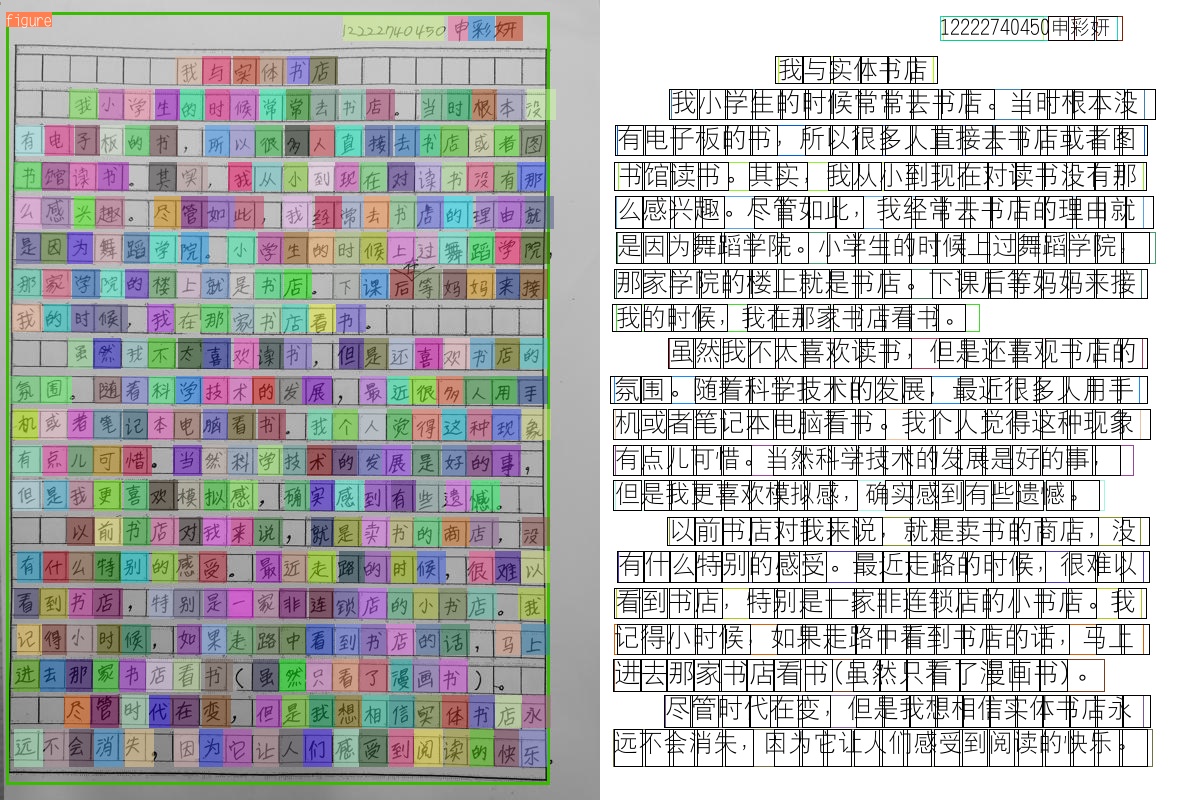 figure
12222740450申彩妍
我与实体书店
我小学生的时候常常去书店。当时根本没
有电子板的书，所以很多人直接去书店或者图
书馆读书。其实，我从小到现在对读书没有那
么感兴趣。尽管如此，我经常去书店的理由就
是因为舞蹈学院。小学生的时候上过舞蹈学院，
那家学院的楼上就是书店。下课后在等妈妈来接
我的时候，我在那家书店看书。
虽然我不太喜欢读书，但是还喜欢书店的
氛围。随着科学技术的发展，最近很多人用手
机或者笔记本电脑看书。我个人觉得这种现象
有点儿可惜。当然科学技术的发展是好的事，
但是我更喜欢模拟感，确实感到有些遗憾。
以前书店对我来说，就是卖书的商店，没
有什么特别的感受。最近走路的时候，很难以
看到书店，特别是一家非连锁店的小书店。我
记得小时候，如果走路中看到书店的话，马上
进去那家书店看书(虽然只看了漫画书)。
尽管时代在变，但是我想相信实体书店永
远不会消失，因为它让人们感受到阅读的快乐，
12222740450申彩妍
我与实体书店
我小学生的时候常常去书店。当时根本没
有电子板的书，所以很多人直接去书店或者图
书馆读书。其实，我从小到现在对读书没有那
么感兴趣。尽管如此，我经常去书店的理由就
是因为舞蹈学院。小学生的时候上过舞蹈学院，
那家学院的楼上就是书店。下课后等妈妈来接
我的时候，我在那家书店看书。
虽然我不太喜欢读书，但是还喜观书店的
氛围。随着科学技术的发展，最近很多人用手
机或者笔记本电脑看书。我个人觉得这种现象
有点儿可惜。当然科学技术的发展是好的事，
但是我更喜欢模拟感，确实感到有些遗憾。
以前书店对我来说，就是卖书的商店，没
有什么特别的感受。最近走路的时候，很难以
看到书店，特别是一家非连锁店的小书店。我
记得小时候，如果走路中看到书店的话，马上
进去那家书店看书(虽然只看了漫画书)。
尽管时代在变，但是我想相信实体书店永
远不会消失，因为它让人们感受到阅读的快乐。